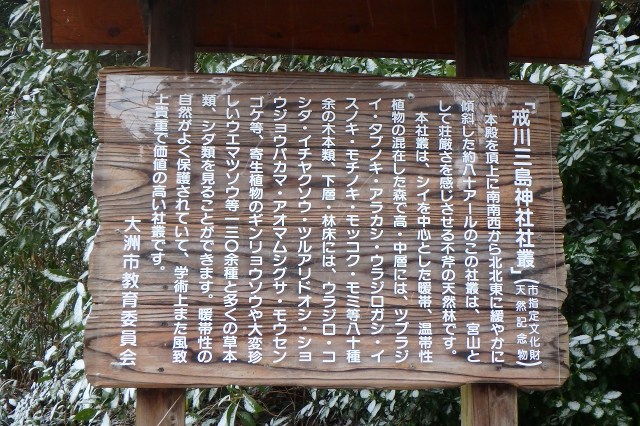 「戒川三島神社社叢」(市指定文化財 天然記念物)
本殿を頂上に南南西から北北東に緩やかに
傾斜した約八十アールのこの社叢は、宮山と
して荘厳さを感じさせる不斧の天然林です。
本社叢は、シイを中心とした暖帯、温帯性
植物の混在した森で高・中層には、ツブラジ
イ・タブノキ・アラカシ・ウラジロガシ・イ
スノキ・モチノキ・モッコク・モミ等八十種
余の木本類、下層・林床には、ウラジロ・コ
シダ・イチヤクソウ・ツルアリドオシ・ショ
ウジョウバカマ・アオマムシグサ・モウセン
ゴケ等、寄生植物のギンリョウソウや大変珍
しいウエマツソウ等一三〇余種と多くの草本
類、シダ類を見ることができます。暖帯性の
自然がよく保護されていて、学術上また風致
上貴重で価値の高い社叢です。
大洲市教育委員会